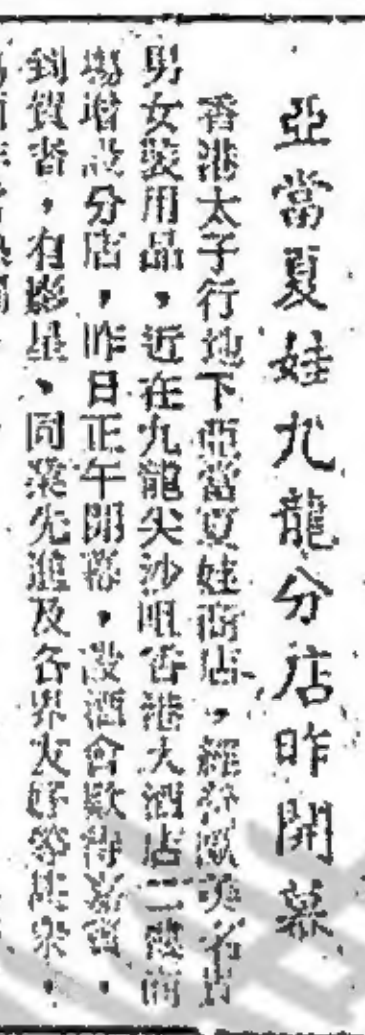 亞當夏娃九龍分店昨開幕
香港太子行地下亞當夏娃商店，經營歐美名貴
男女裝用品，近在九龍尖沙咀香港大酒店二樓商
場增設分店，昨日正午開幕，設酒會欵待嘉賓，
到賀者，有影星、同業先進及各界友好等甚衆，